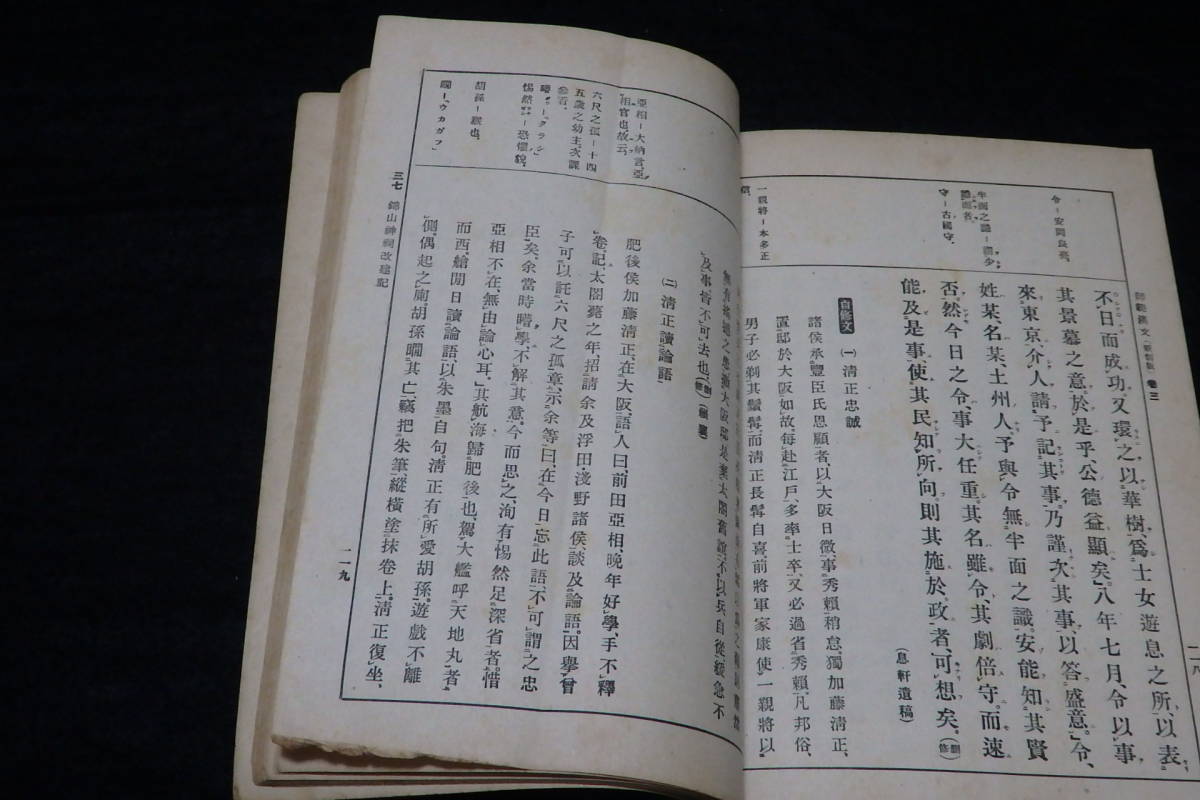 師範漢文(新制版) 卷三
一一八
不日而成功、又環之以華樹、爲士女遊息之所、以表
其景慕之意。於是乎公德益顯矣。八年七月、令以事
來東京、介人請予記其事。乃謹次其事、以答盛意。令、
姓某、名某、土州人、予與令無半面之識。安能知其賢
否。然今日之令、事大任重。其名雖令、其劇倍守。而速
能及是事、使其民知所向、則其施於政者、可想矣。(刪修)
(息軒遺稿)
自修文 (一)清正忠誠
諸侯承豐臣氏恩顧者、以大阪日徵、事秀賴稍怠、獨加藤淸正、
置邸於大阪如故、每赴江戶、多率士卒、又必過省秀賴、凡邦俗、
男子必剃其鬚髯、而淸正長髯自喜、前將軍家康使一親將以
令ー安岡良亮。
半面之識ー識少
守ー古國守。
一親將ー本多正
信。
及事皆不可去也、(刪修)
(二)淸正讀論語
肥後侯加藤淸正、在大阪、語人曰、前田亞相、晚年好學、手不釋
卷、記、太閤薨之年、招請余及浮田、淺野諸侯、談及論語。因擧曾
子可以託六尺之孤章、示余等曰、在今日忘此語、不可謂之忠
臣矣、余當時曀學、不解其意。今而思之、洵有惕然足深省者。惜
亞相不在、無由論心耳、其航海歸肥後也、駕大艦呼天地丸者、
而西、艙閒日讀論語、以朱墨自句淸正有所愛胡孫、遊戲不離
側、偶起之廁、胡孫瞯其亡、竊把朱筆縱橫塗抹卷上。淸正復坐、
亞相ー大納言、亞
相官也、故云、
六尺之孤ー十四
五歲之幼主、次課
參看。
曀ー「クラシ」
惕然ー恐懼貌、
胡孫ー猴也、
瞯ー「ウカガフ」
三七 錦山神祠改建記
一一九